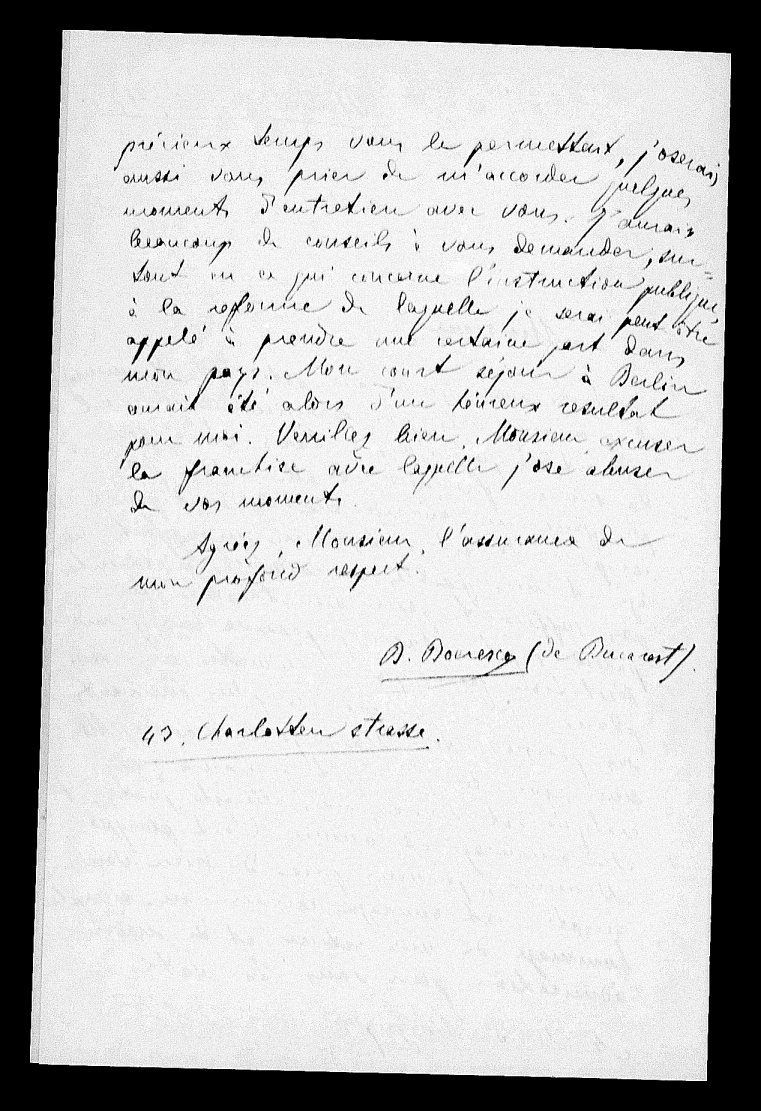 précieux temps vous le permettent, j'oserais
aussi vous prier de m'accorder quelques
moments d'entretien avec vous. J'aurais
beaucoup de conseils à vous demander, sur-
tout en ce qui concerne l'instruction publique,
à la reforme de laquelle je serai peut être
appelé à prendre une certaine part dans
mon pays. Mon court séjour à Berlin
aurait été alors d'un heureux resultat
pour moi. Veuillez bien, Monsieur, excuser
la franchise avec laquelle j'ose abuser
de vos moments.
Agréez, Monsieur, l'assurance de
mon profond respect.
B. Boerescu (de Bucarest).
43. Charlotten strasse.